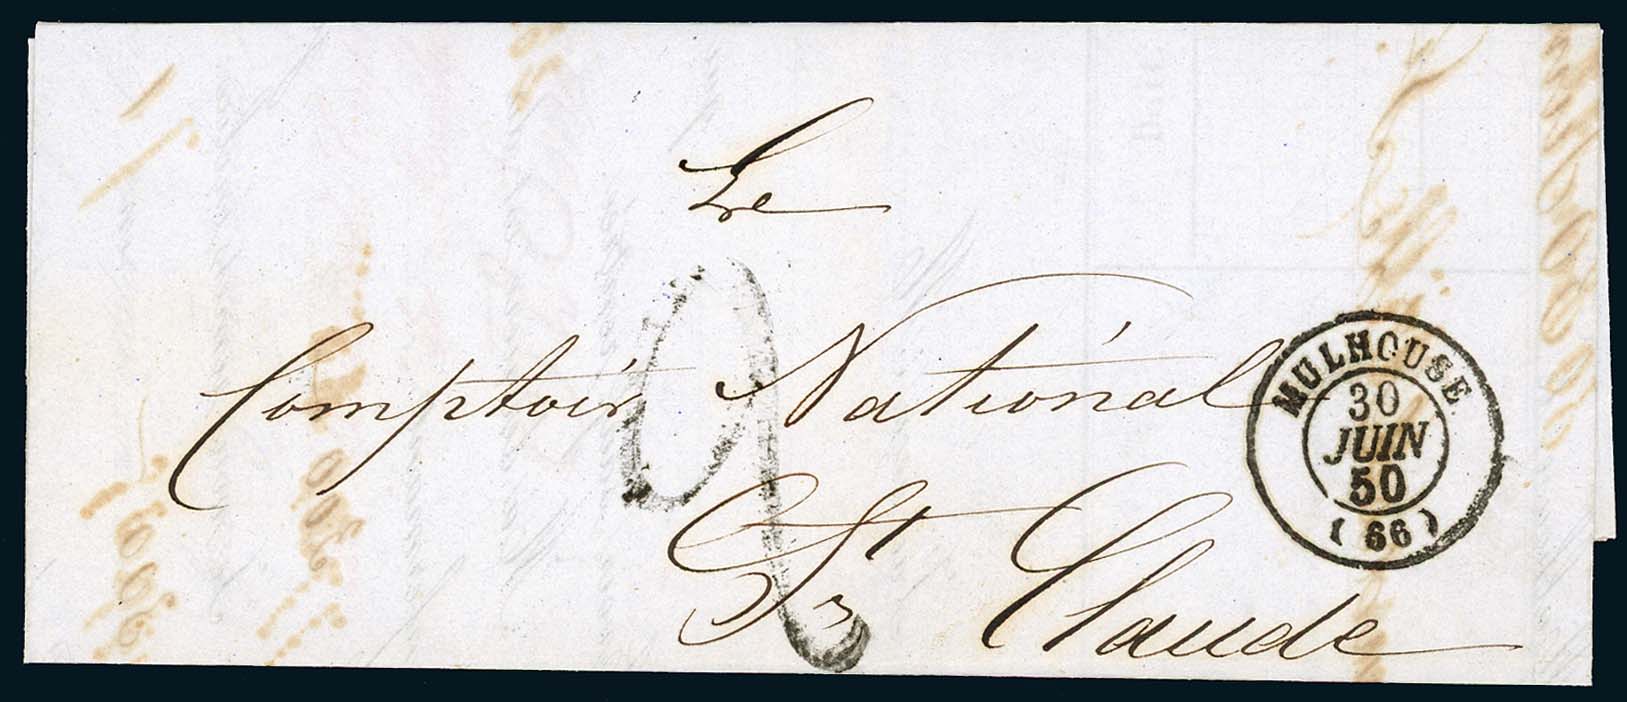 Le
Comptoir National
St Claude
2
MULHOUSE
30
JUIN
50
( 66 )